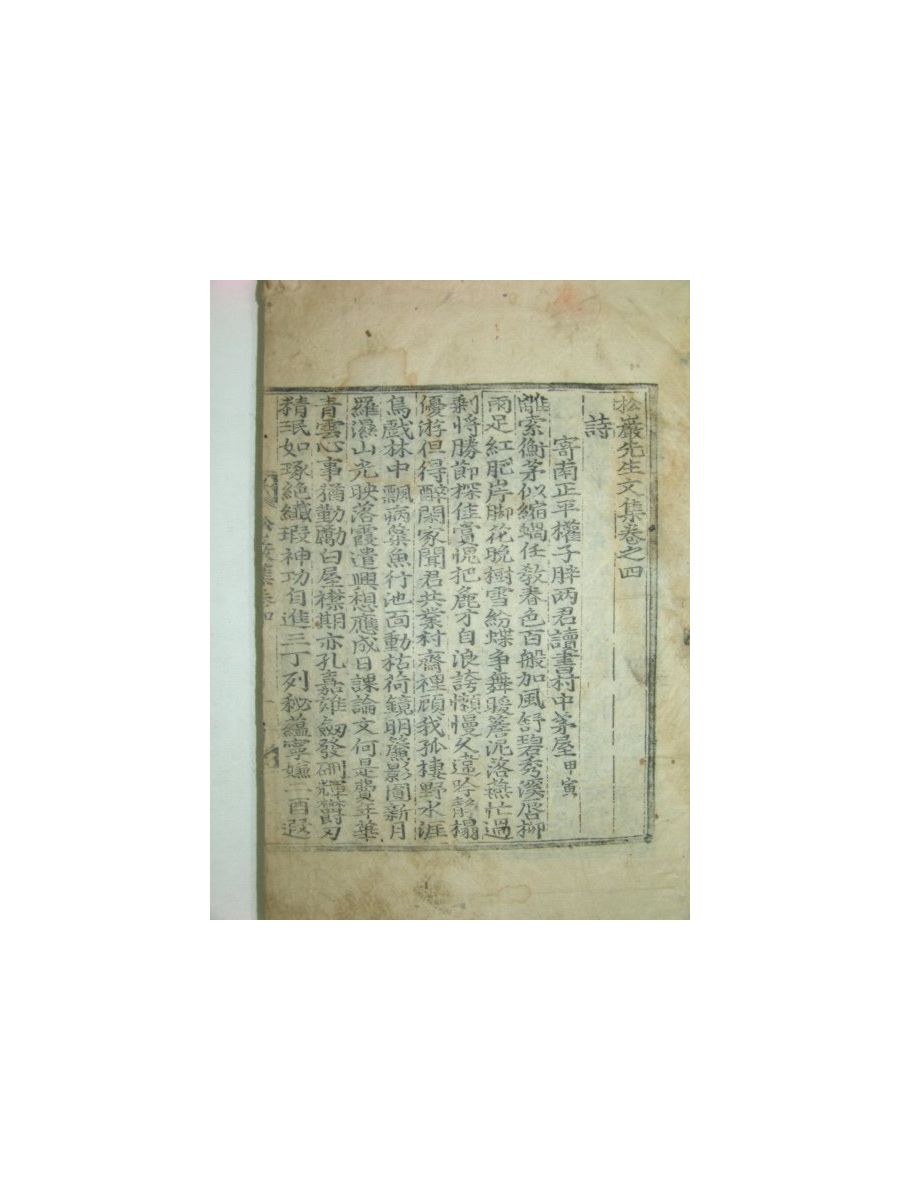 松巖先生文集卷之四
詩
寄南正平權子胖两君讀書村中茅屋甲寅
離索衡茅似縮蝸任敎春色百般加風舒碧秀溪唇柳
雨足紅肥岸脚花晩樹雪紛蝶争舞暖簷泥落燕忙過
剩將勝節探佳賞愧把麁才自浪誇懶慢久違吟鷰榻
優游但得醉閑家聞君共業村齋裡顧我孤棲野水涯
鳥戲林中飄病葉魚行池面動枯荷鏡明簾影圓新月
羅濕山光映落霞遣興想應成日課論文何是費年華
青雲心事猶勤勵白屋襟期亦孔嘉雄劒發硎輝欝刃
精珉如琢絶纖瑕神功自進三丁列秘蘊寧嫌一酉遐